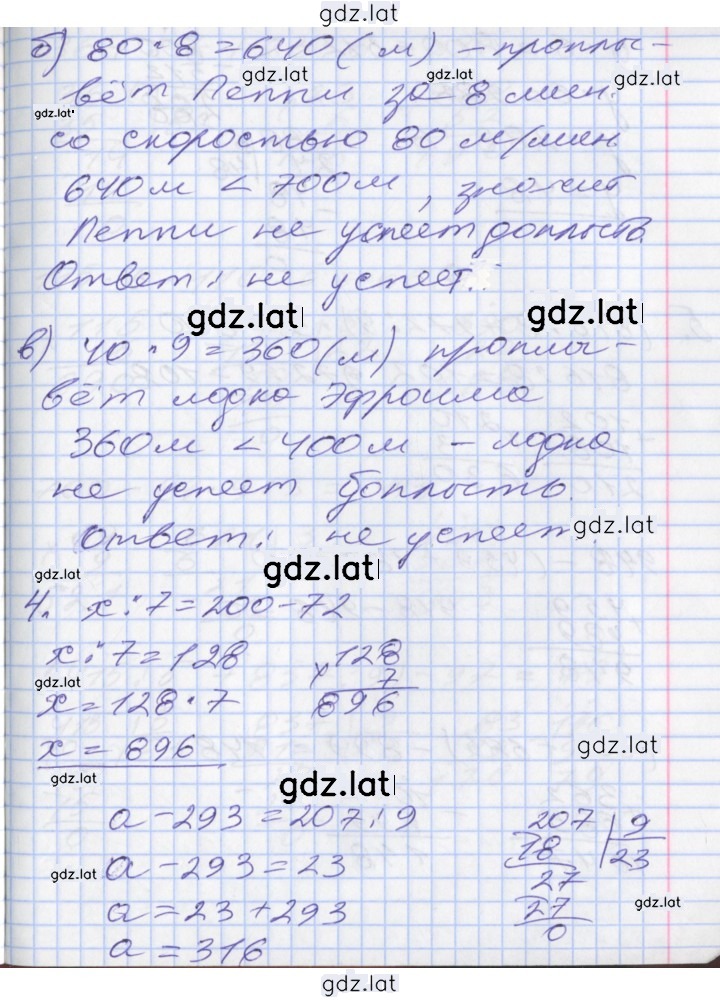 gdz.lat
б) 80 · 8 = 640 (м) – проплы-
gdz.lat gdz.lat gdz.lat
вёт Пеппи за 8 мин.
gdz.lat
со скоростью 80 м/мин
640м < 700м, значит
Пеппи не успеет доплыть.
Ответ: не успеет.
gdz.lat gdz.lat
в) 40 · 9 = 360 (м) проплы-
вёт лодка Эфроима
360м < 400м – лодка
не успеет доплыть.
Ответ: не успеет.
gdz.lat
gdz.lat gdz.lat
4. x : 7 = 200 – 72
x : 7 = 128 128
gdz.lat × 7
x = 128 · 7 896
x = 896 gdz.lat
gdz.lat gdz.lat
a – 293 = 207 : 9 207 | 9
18 23
gdz.lat a – 293 = 23 27
a = 23 + 293 27 gdz.lat
0
a = 316
gdz.lat